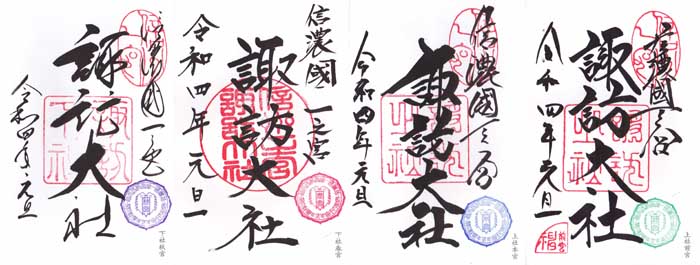 信濃國一之宮
諏訪大社
令和四年元旦
下社秋宮
信濃國一之宮
諏訪大社
令和四年元旦
下社春宮
信濃國一之宮
諏訪大社
令和四年元旦
上社本宮
信濃國一之宮
諏訪大社
令和四年元旦
上社前宮